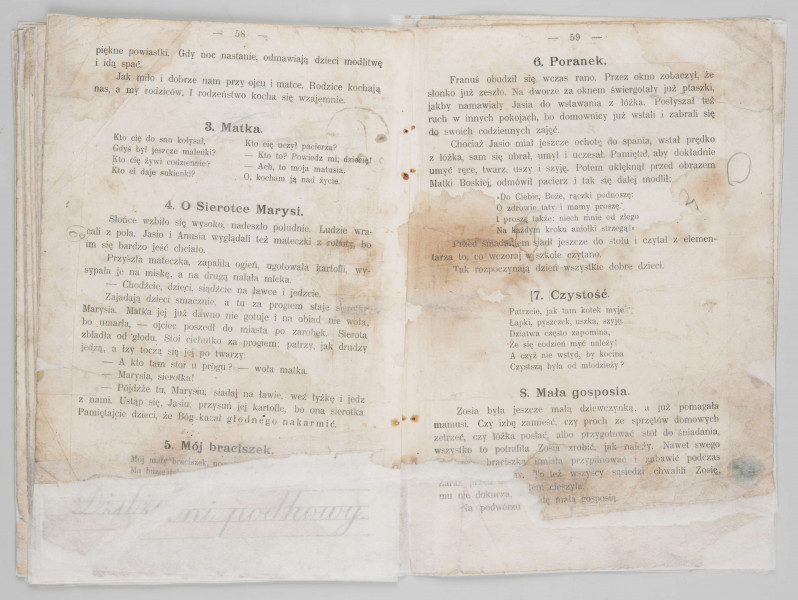 — 58 —
piękne powiastki. Gdy noc nastanie, odmawiają dzieci modlitwę
i idą spać.
Jak miło i dobrze nam przy ojcu i matce. Rodzice kochają
nas, a my rodziców. I rodzeństwo kocha się wzajemnie.
3. Matka.
Kto cię do snu kołysał,
Gdyś był jeszcze maleńki?
Kto cię żywi codziennie?
Kto ci daje sukienki?
Kto cię uczył pacierza?
— Kto to? Powiedz mi, dziecię!
— Ach, to moja matusia,
O, kocham ją nad życie.
4. O Sierotce Marysi.
Słońce wzbiło się wysoko, nadeszło południe. Ludzie wra-
cali z pola. Jasio i Anusia wyglądali też mateczki z roboty, bo
im się bardzo jeść chciało.
Przyszła mateczka, zapaliła ogień, ugotowała kartofli, wy-
sypała je na miskę, a na drugą nalała mleka.
— Chodźcie, dzieci, siądźcie na ławce i jedzcie.
Zajadają dzieci smacznie, a tu za progiem staje sierotka
Marysia. Matka jej już dawno nie gotuje i na obiad nie woła,
bo umarła, — ojciec poszedł do miasta po zarobek. Sierota
zbladła od głodu. Stoi cichutko za progiem; patrzy, jak drudzy
jedzą, a łzy toczą się jej po twarzy.
— A kto tam stoi u progu? — woła matka.
— Marysia, sierotka!
— Pójdźże tu, Marysiu, siadaj na ławie, weź łyżkę i jedz
z nami. Ustąp się, Jasiu, przysuń jej kartofle, bo ona sierotka
Pamiętajcie dzieci, że Bóg kazał głodnego nakarmić.
5. Mój braciszek.
Mój mały braciszek,
ni podkowy.
— 59 —
6. Poranek.
Franuś obudził się wczas rano. Przez okno zobaczył, że
słonko już zeszło. Na dworze za oknem świergotały już ptaszki,
jakby namawiały Jasia do wstawania z łóżka. Posłyszał też
ruch w innych pokojach, bo domownicy już wstali i zabrali się
do swoich codziennych zajęć.
Chociaż Jasio miał jeszcze ochotę do spania, wstał prędko
z łóżka, sam się ubrał, umył i uczesał. Pamiętał, aby dokładnie
umyć ręce, twarz, uszy i szyję. Potem ukląknął przed obrazem
Matki Boskiej, odmówił pacierz i tak się dalej modlił:
»Do Ciebie, Boże, rączki podnoszę:
O zdrowie taty i mamy proszę,
I proszę także: niech mnie od złego
Na każdym kroku aniołki strzegą!«
Przed śniadaniem siadł jeszcze do stołu i czytał z elemen-
tarza to, co wczoraj w szkole czytano.
Tak rozpoczynają dzień wszystkie dobre dzieci.
7. Czystość.
Patrzcie, jak tam kotek myje
Łapki, pyszczek, uszka, szyję.
Dziatwa często zapomina,
Że się codzień myć należy!
A czyż nie wstyd, by kocina
Czystszą była od młodzieży?
8. Mała gosposia.
Zosia była jeszcze małą dziewczynką, a już pomagała
mamusi. Czy izbę zamieść, czy proch ze sprzętów domowych
zetrzeć, czy łóżka posłać, albo przygotować stół do śniadania,
wszystko to potrafiła Zosia zrobić, jak należy. Nawet swego
braciszka umiała przypilnować i zabawić podczas
To też wszyscy sąsiedzi chwalili Zosię,
mu nie dokucza, małą gosposią
Na podwórzu